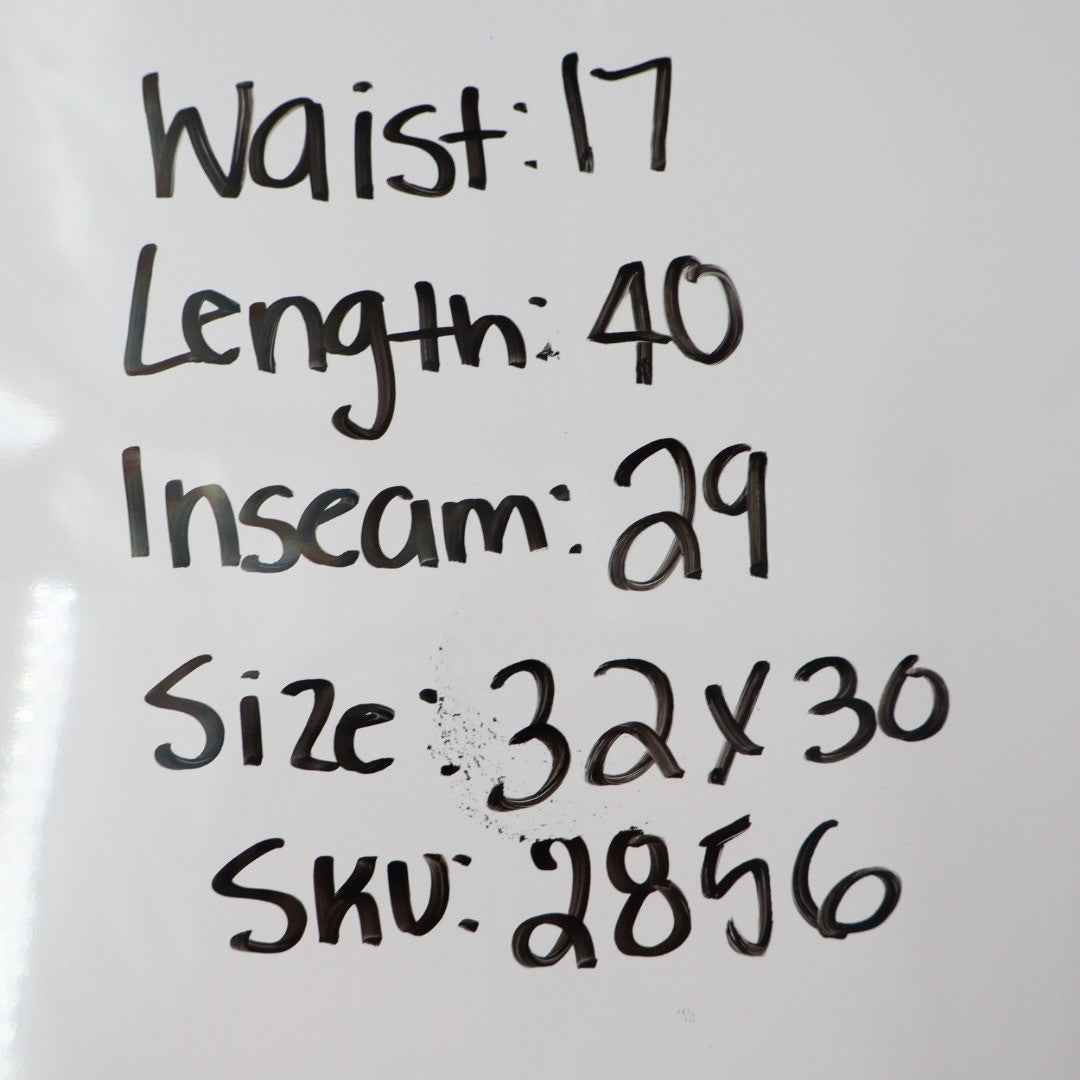 Waist: 17
Length: 40
Inseam: 29
Size: 32x30
SKU: 2856